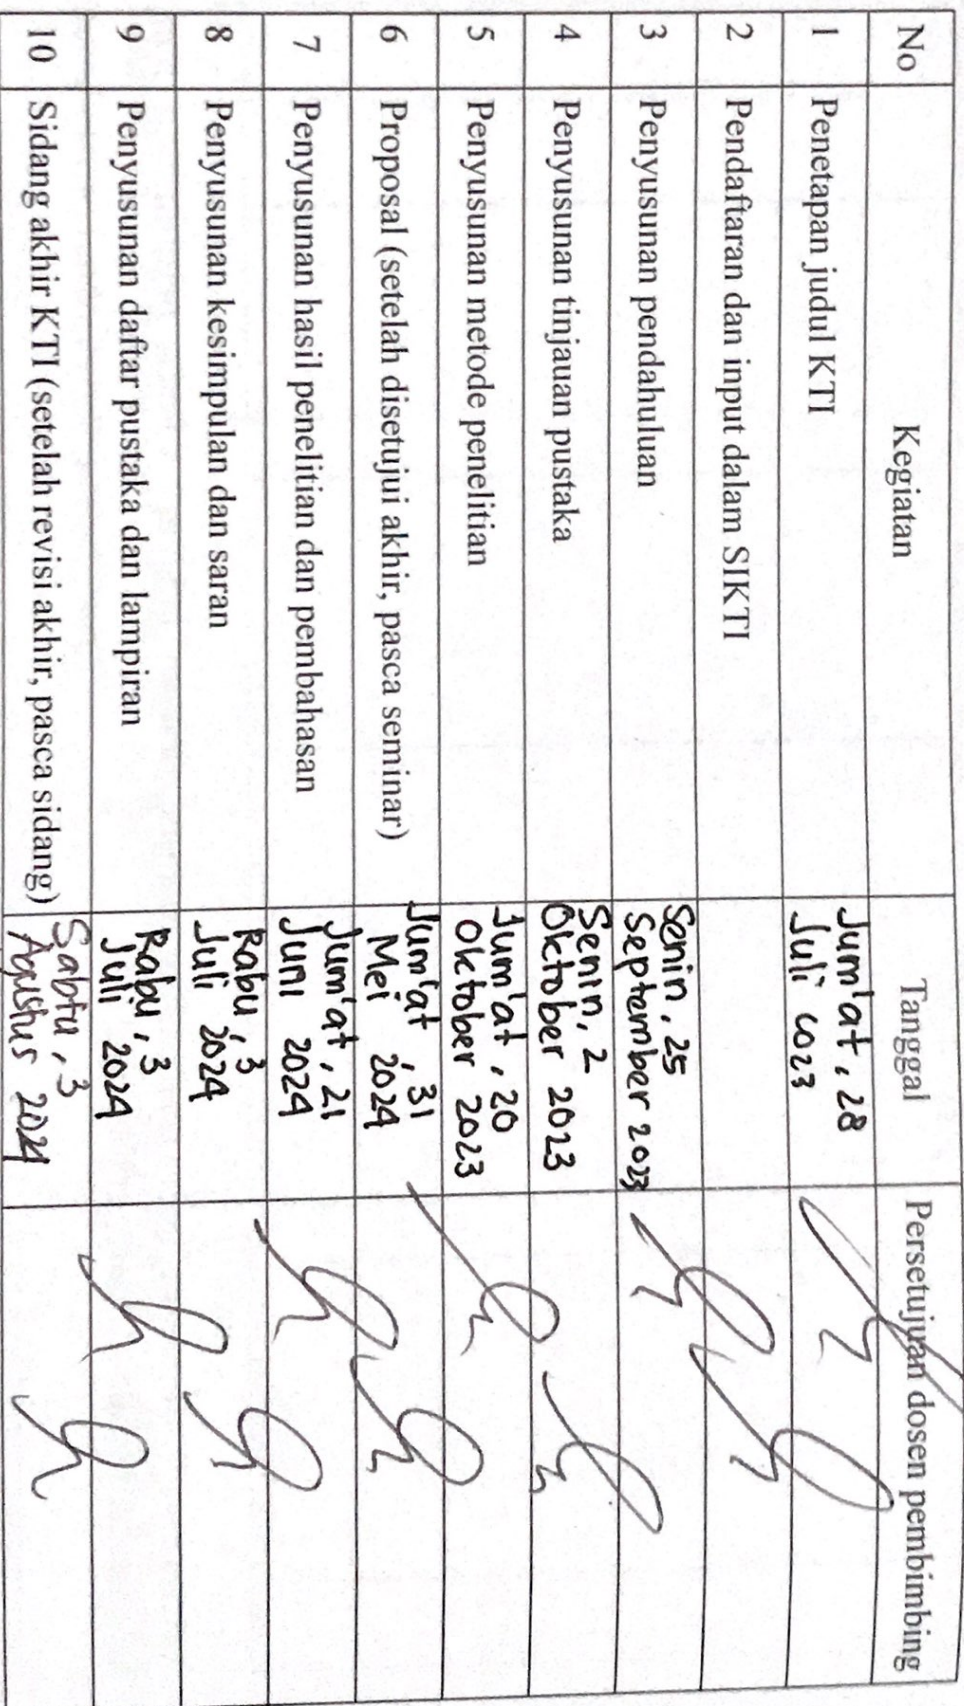 No Kegiatan Tanggal Persetujuan dosen pembimbing
1 Penetapan judul KTI Jum'at, 28
Juli 2023
2 Pendaftaran dan input dalam SIKTI
3 Penyusunan pendahuluan Senin, 25
September 2023
4 Penyusunan tinjauan pustaka Senin, 2
Oktober 2023
5 Penyusunan metode penelitian Jum'at, 20
Oktober 2023
6 Proposal (setelah disetujui akhir, pasca seminar) Jum'at, 31
Mei 2024
7 Penyusunan hasil penelitian dan pembahasan Jum'at, 21
Juni 2024
8 Penyusunan kesimpulan dan saran Rabu, 3
Juli 2024
9 Penyusunan daftar pustaka dan lampiran Rabu, 3
Juli 2024
10 Sidang akhir KTI (setelah revisi akhir, pasca sidang) Sabtu, 3
Agustus 2024